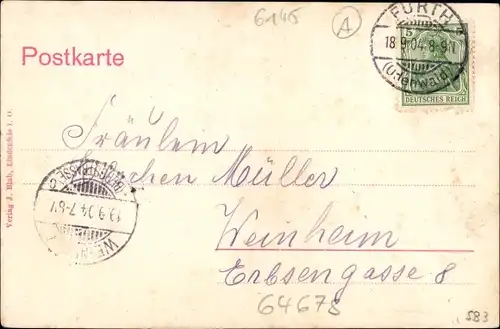 6145
A
Postkarte
FÜRTH
18.9.04.8-9N
(Odenwald)
5
DEUTSCHES REICH
Fräulein
chen Müller
Weinheim
Erbsengasse 8
64678
583
(BERGSTRASSE)
19.9.04.7-8V
WEINHEIM
Verlag J. Blab, Lindenfels i. O.